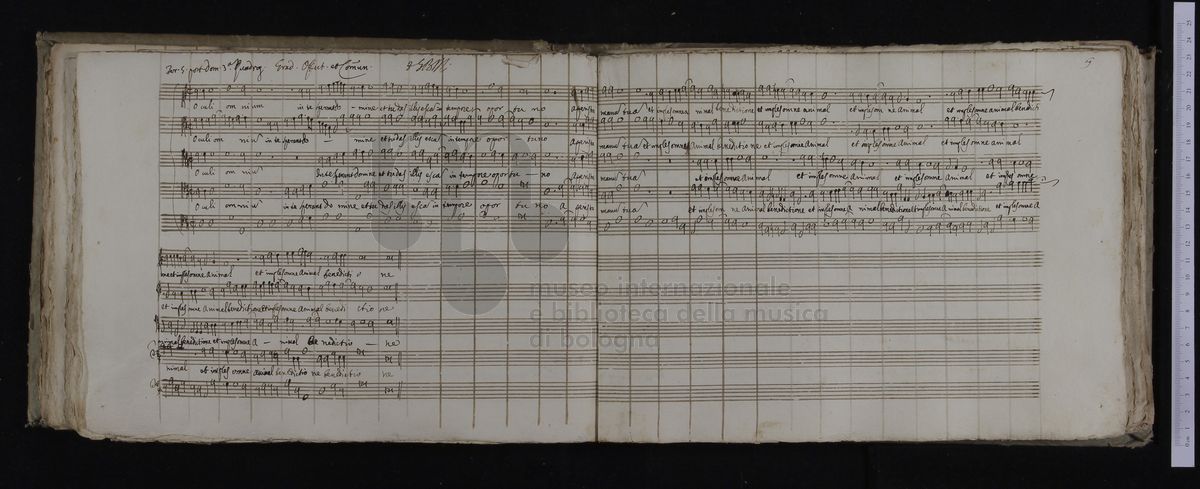 fer. 5. post Dom. 3.am Quadrag. Grad. Offert. et Comun.
5
Oculi omnium in te sperant do - mine et tu das illis escã in tempore opor tu no aperis tu manu tuã et imples omne animal benedictione et imples omne animal et imples omne animal et imples omne animal benedicti
Oculi om niũ in te sperant do - mine et tu das illis escã in tempore opor - tuno aperis tu manũ tuã et imples omne animal benedictione et imples omne animal et imples omne animal et imples omne animal
Oculi om niũ in te sperant domine et tu das illis escã in tempore opor tu - no aperis tu manũ tuã et imples omne animal et imples omne animal et imples omne animal et imples omne
Oculi omniũ in te sperant do mine et tu das illis escã in tempore opor tu no a peris tu manũ tuã et imples om ne animal benedictione et imples omne animal benedictione et imples omne animal benedictione et imples omne a
one et imples omne animal et imples omne animal benedicti o ne
et imples omne animal benedictione et imples omne animal benedi ctio ne
nimal benedictione et imples omne a - nimal be nedictio - ne
nimal et imples omne animal benedictio ne benedictio ne
museo internazionale
e biblioteca della musica
di bologna